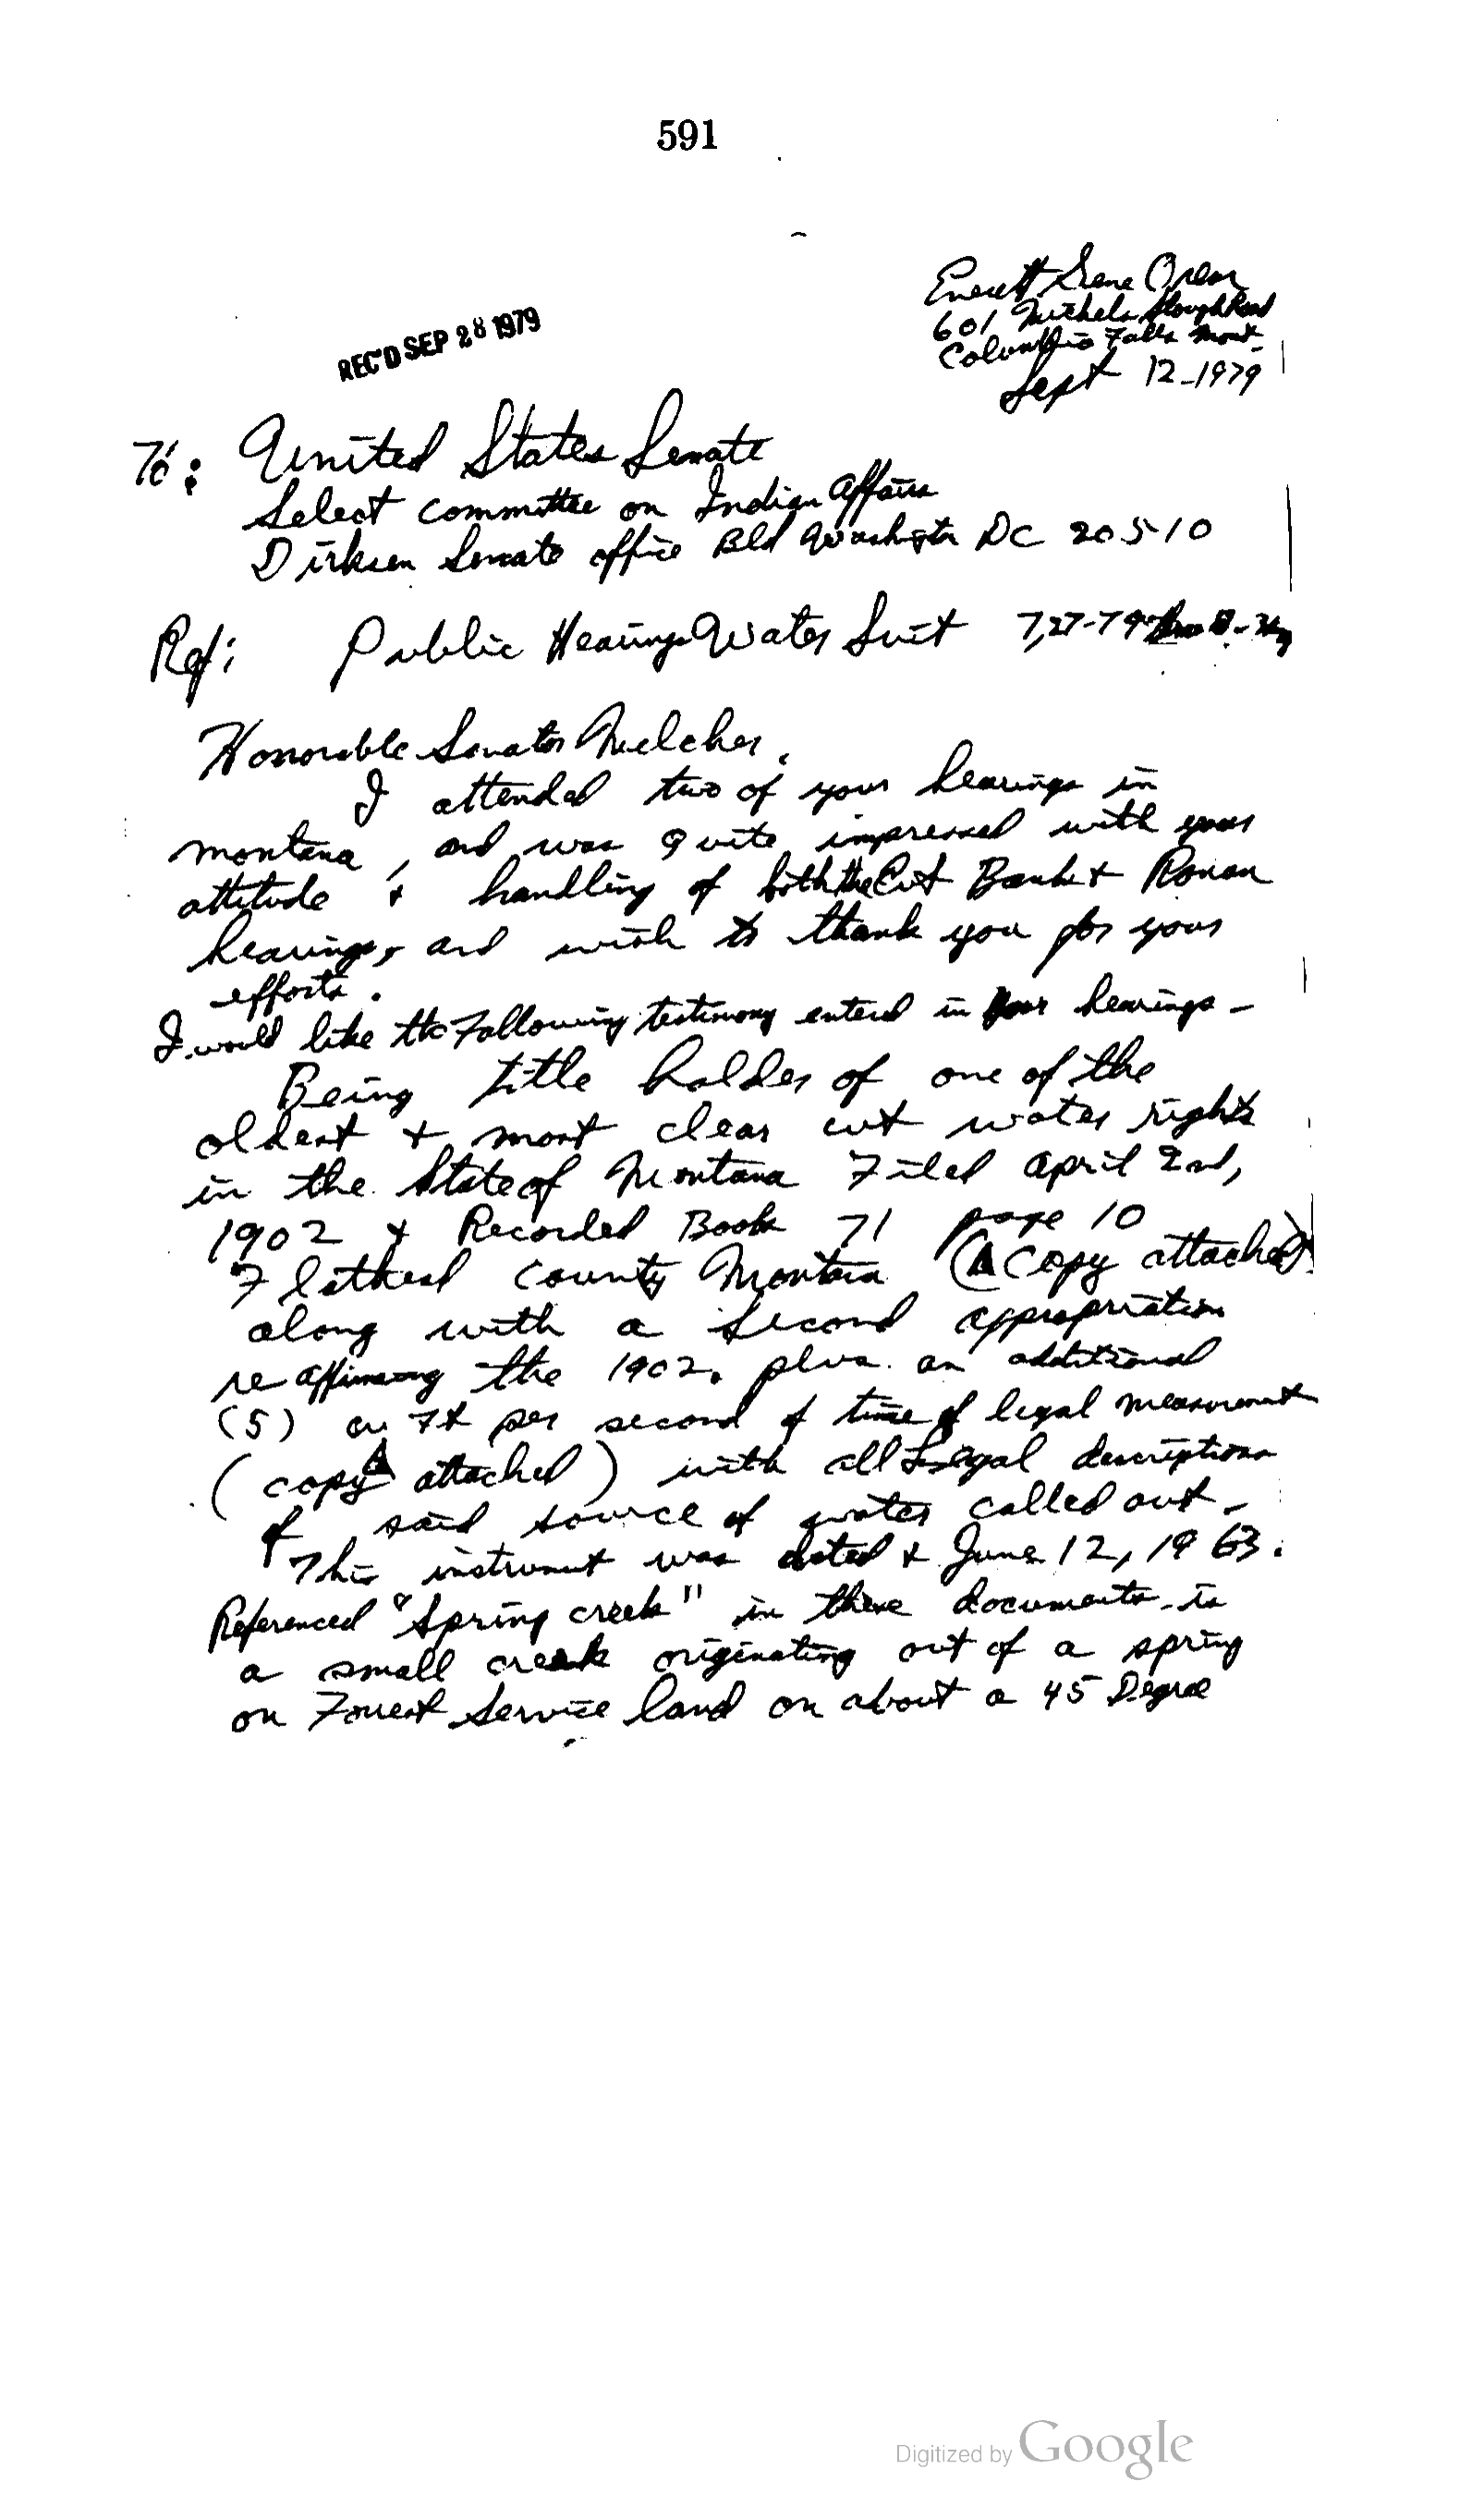 591
REC'D SEP 28 1979
Everett Gene Oren
601 Michels Slough Road
Columbia Falls Mont
Sept 12-1979
To: United States Senate
Select committee on Indian Affairs
Dirksen Senate office Bld Washington DC 20510
Ref: Public Hearings Water Suit 7,27-79
Honorable Senator Melcher,
I attended two of your hearings in
montana, and was quite impressed with your
attitude & handling of both the Cut Bank & Ronan
hearings, and wish to thank you for your
efforts.
I would like the Following testimony enterd in your hearings -
Being title holder of one of the
oldest & most clear cut water rights
in the State of Montana Filed april 2nd,
1902 & Recorded Book 71 page 10
Flathead County Montana (A copy attached)
along with a second appropriation
re affirming the 1902, plus an additional
(5) cu Ft per second of time of legal measurement
(copy attached) with all Legal descriptions
of said source of water called out -
This instrument was dated & June 12, 1963.
Referenced "Spring creek" in these documents is
a small creek originating out of a spring
on Forest Service land on about a 45 Degree
Digitized by Google